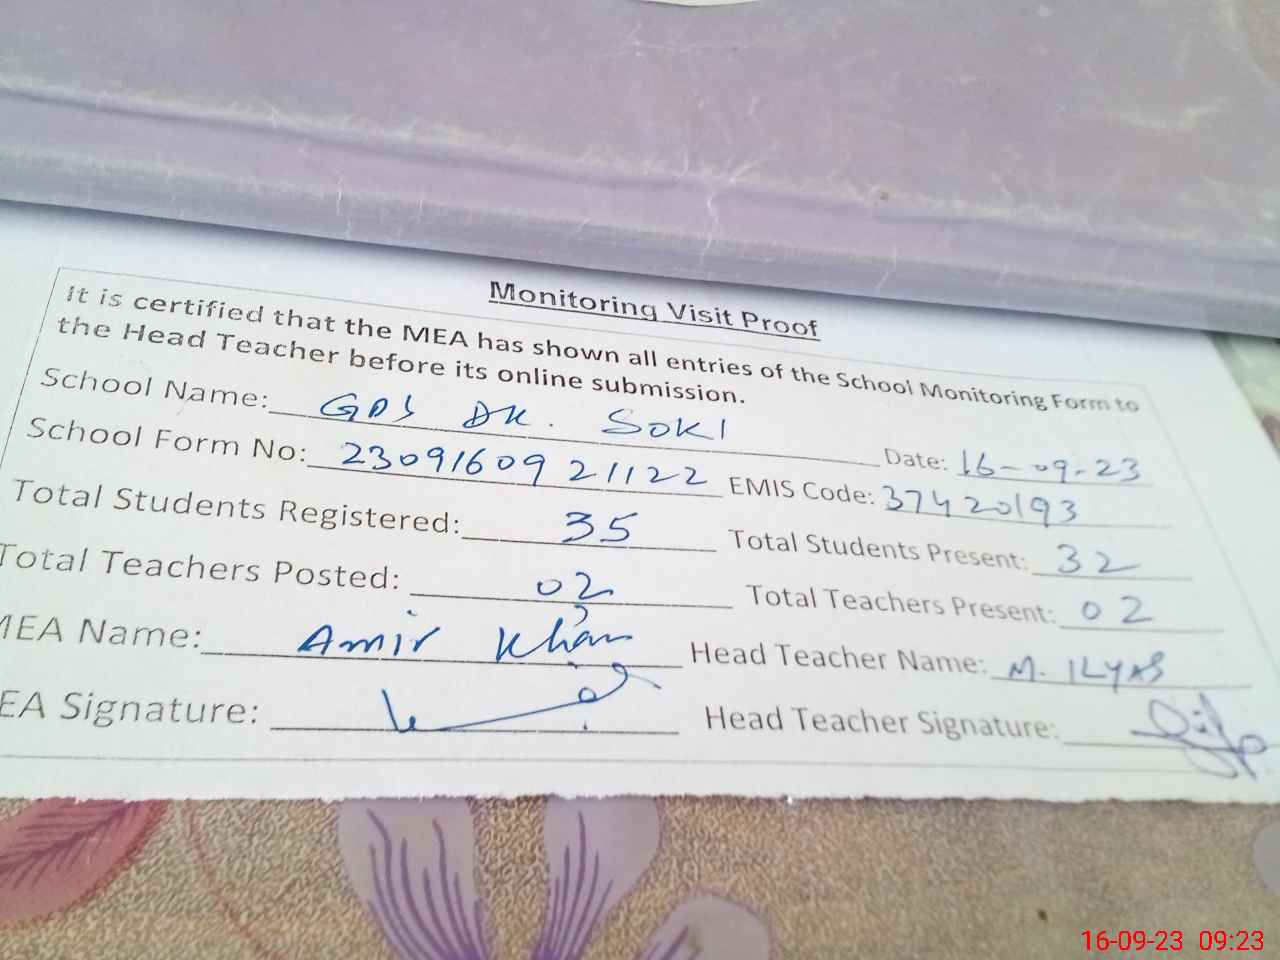 Monitoring Visit Proof
It is certified that the MEA has shown all entries of the School Monitoring Form to
the Head Teacher before its online submission.
School Name: GPS DK. SOKI Date: 16-09-23
School Form No: 23091609 21122 EMIS Code: 37420193
Total Students Registered: 35 Total Students Present: 32
Total Teachers Posted: 02 Total Teachers Present: 02
MEA Name: Amir Khan Head Teacher Name: M. ILYAS
EA Signature: Head Teacher Signature:
16-09-23 09:23